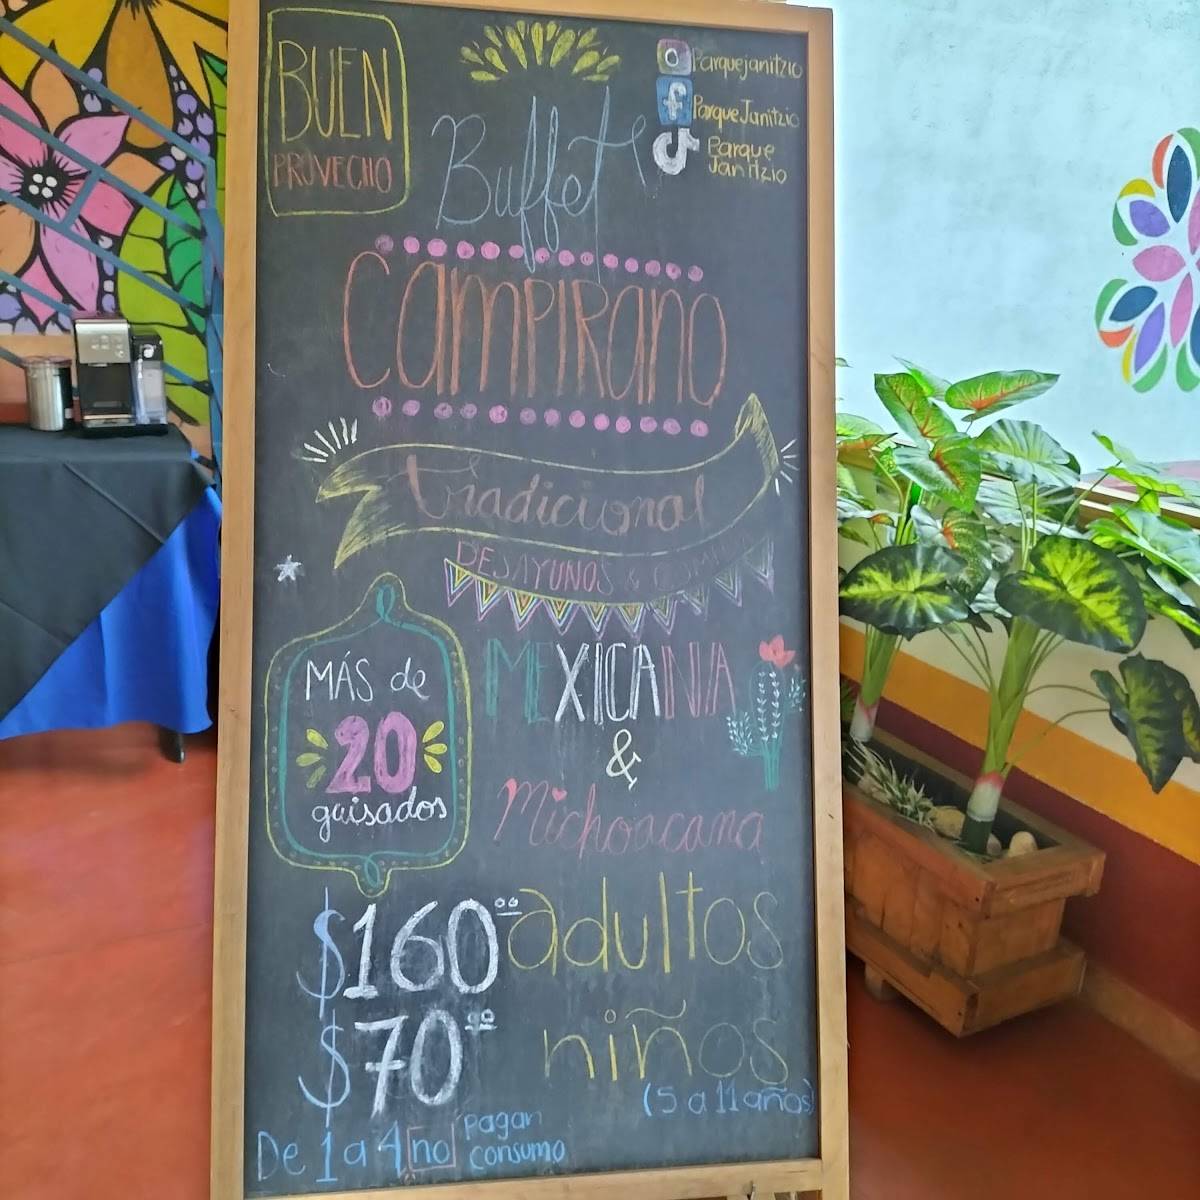 BUEN
PROVECHO
Parquejanitzio
ParqueJanitzio
Parque
Janitzio
Buffet
CAMPIRANO
tradicional
DESAYUNOS & COMIDA
MÁS de
20
guisados
MEXICANA
&
Michoacana
$160.00 adultos
$70.00 niños
(5 a 11 años)
De 1 a 4 no pagan
consumo